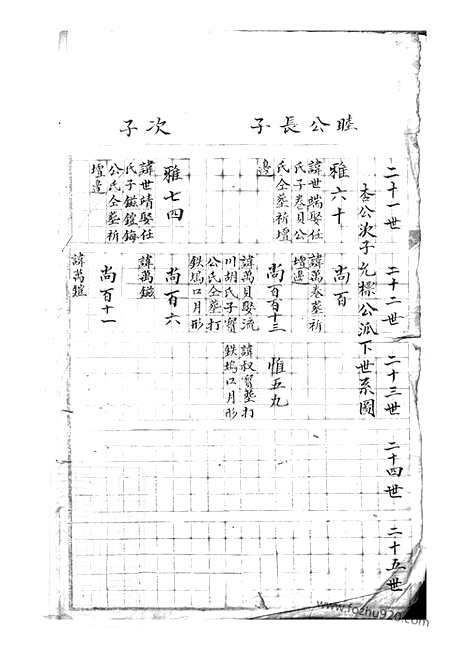 睦公長子
次子
二十一世
二十二世
二十三世
二十四世
二十五世
杏公次子允標公派下世系圖
雅六十
諱世端娶任
氏子卷貝公
氏仝塟祈壇
邊
雅七四
諱世靖娶任
氏子鎡鎧鋂
公氏仝塟祈
壇邊
尚百
諱萬卷塟祈
壇邊
尚百十三
諱萬貝娶流
川胡氏子寳
公氏仝塟打
鉄塢口月形
尚百六
諱萬鎡
尚百十一
諱萬鎧
惟五九
諱叔寳塟打
鉄塢口月形
www.fozhu920.com